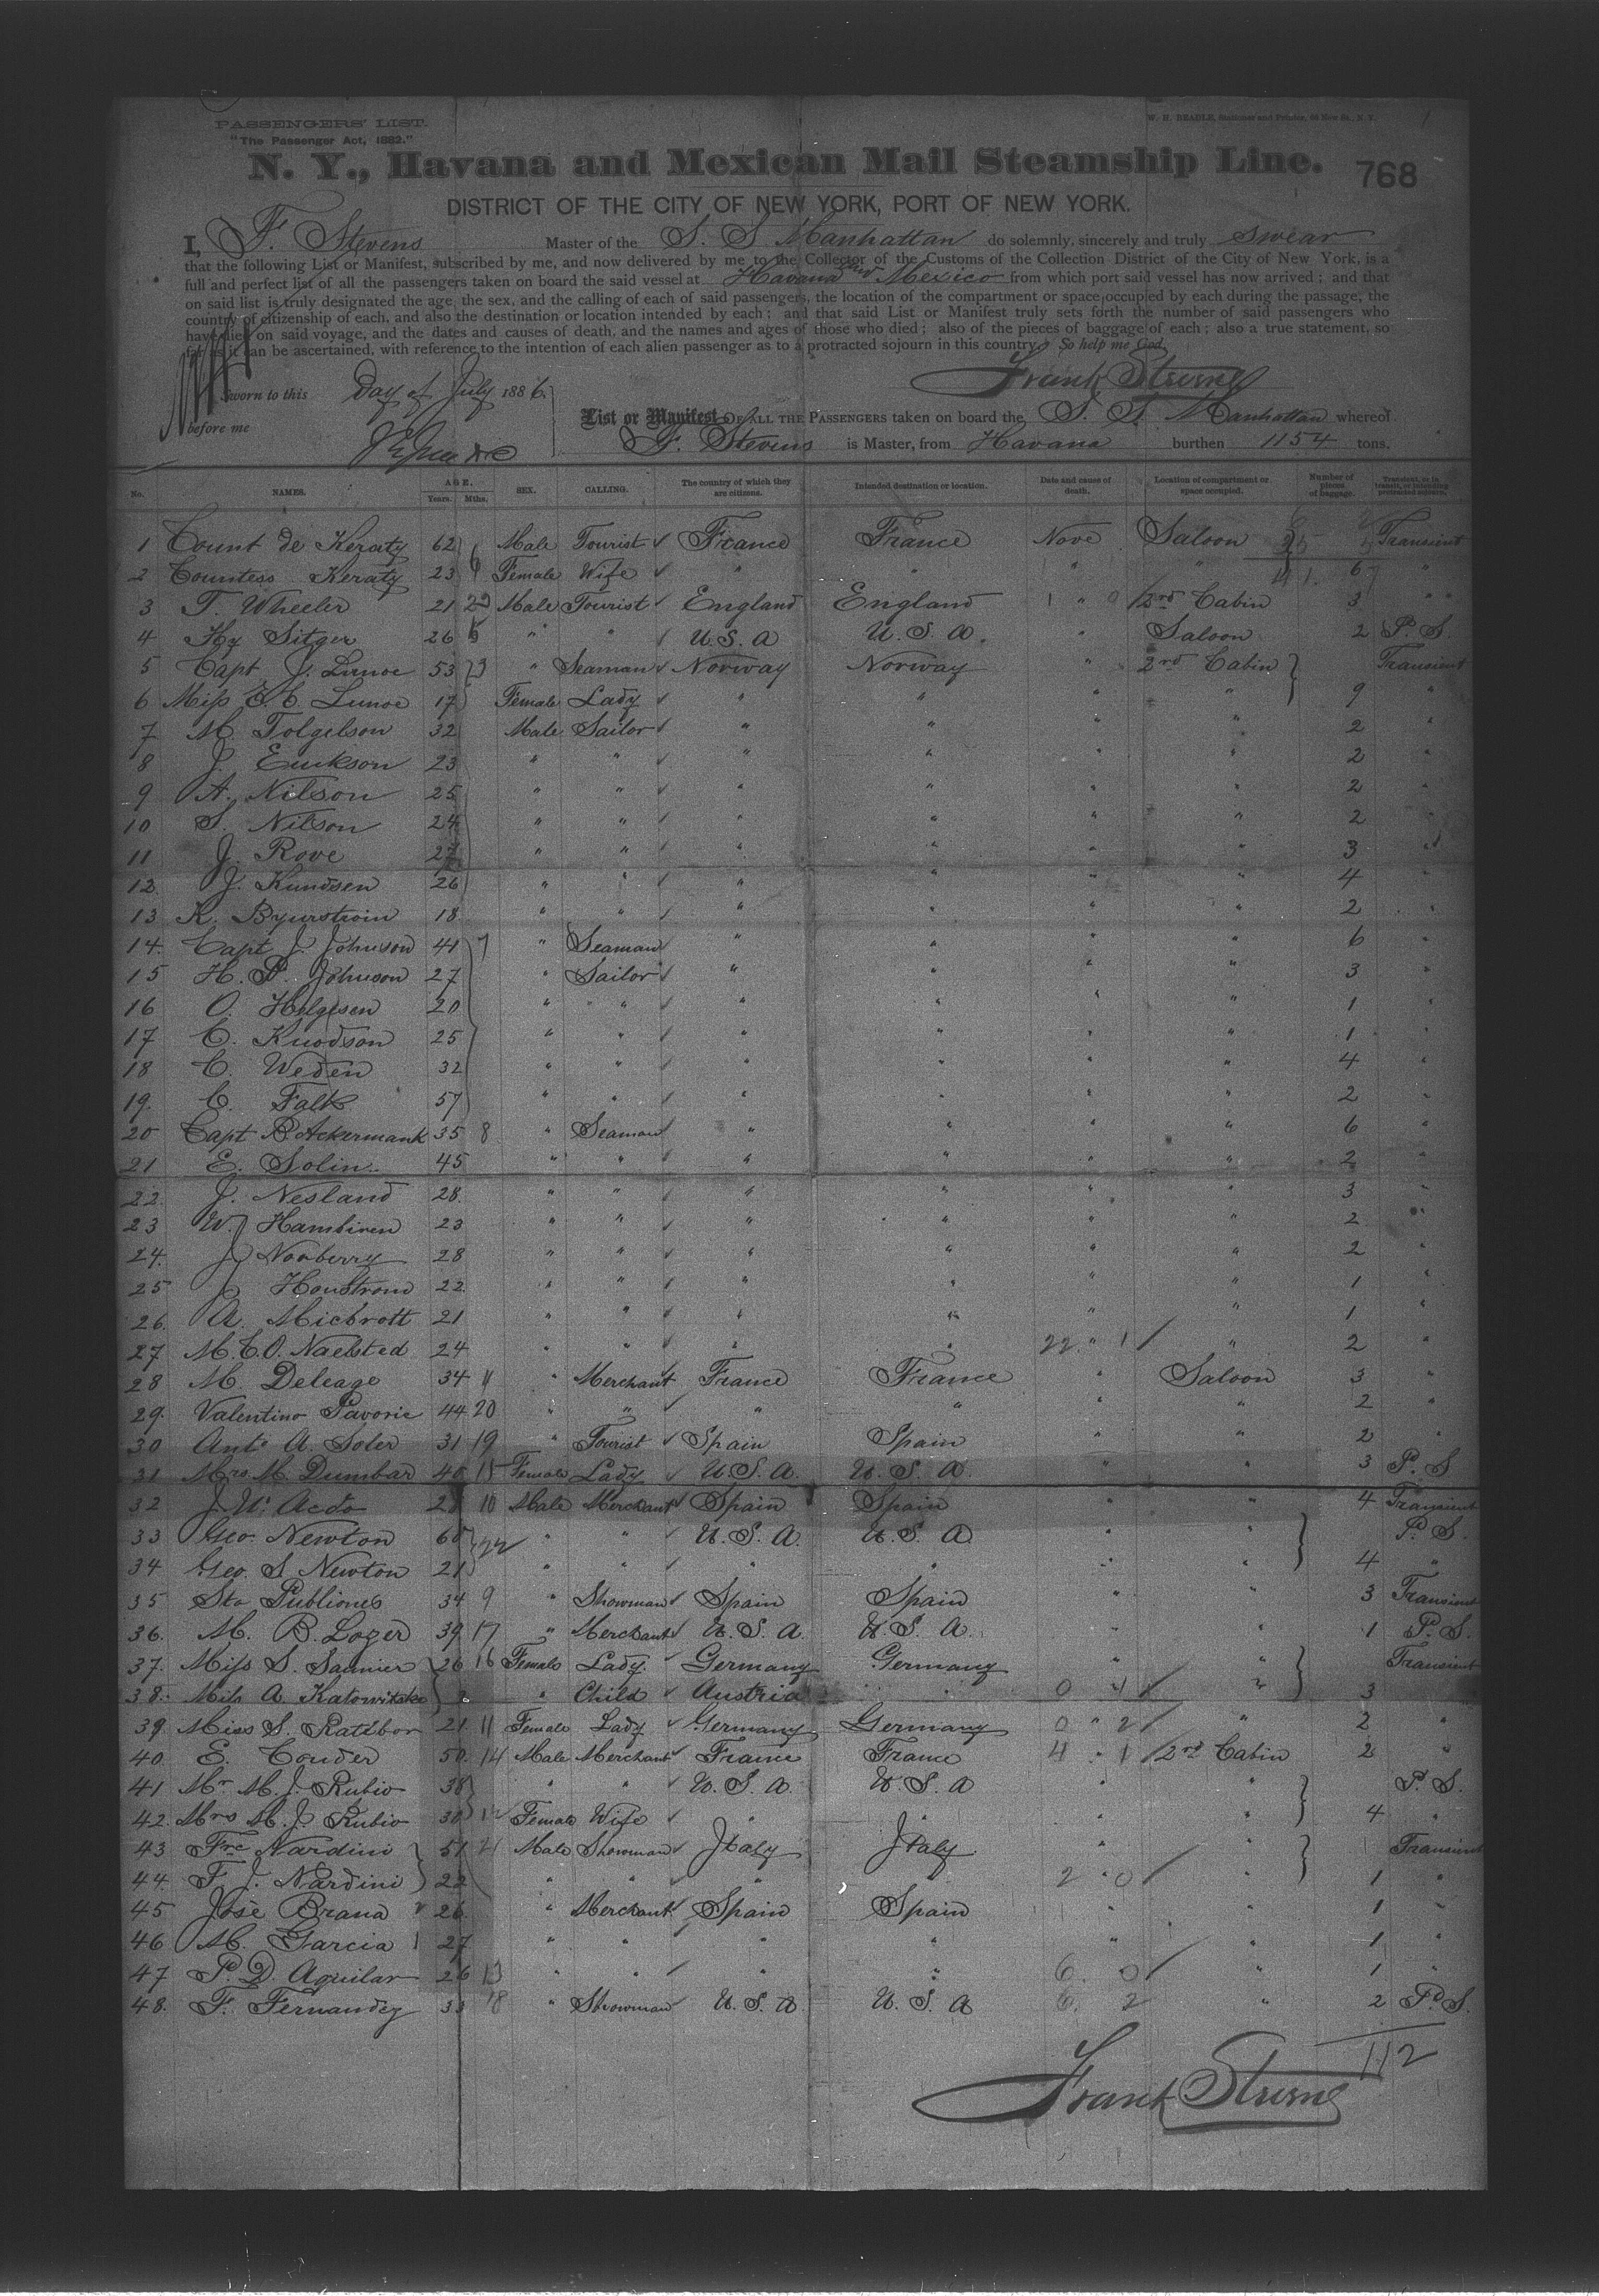 PASSENGERS' LIST.
"The Passenger Act, 1882."
W. H. BEADLE, Stationer and Printer, New St., N. Y.
N. Y., Havana and Mexican Mail Steamship Line. 768
DISTRICT OF THE CITY OF NEW YORK, PORT OF NEW YORK.
I, F. Stevens Master of the S. S. Manhattan do solemnly, sincerely and truly swear
that the following List or Manifest, subscribed by me, and now delivered by me to the Collector of the Customs of the Collection District of the City of New York, is a
full and perfect list of all the passengers taken on board the said vessel at Havana and Mexico from which port said vessel has now arrived; and that
on said list is truly designated the age, the sex, and the calling of each of said passengers, the location of the compartment or space occupied by each during the passage; the
country of citizenship of each, and also the destination or location intended by each; and that said List or Manifest truly sets forth the number of said passengers who
have died on said voyage, and the dates and causes of death, and the names and ages of those who died; also of the pieces of baggage of each; also a true statement, so
far as it can be ascertained, with reference to the intention of each alien passenger as to a protracted sojourn in this country. So help me God.
Frank Stevens
Sworn to this Day of July 1886.
before me
List or Manifest OF ALL THE PASSENGERS taken on board the S. S. Manhattan whereof
F. Stevens is Master, from Havana burthen 1154 tons.
No. NAMES. AGE. Years. Mths. SEX. CALLING. The country of which they are citizens. Intended destination or location. Date and cause of death. Location of compartment or space occupied. Number of pieces of baggage. Transient, or in transit, or intending protracted sojourn.
1 Count de Keraty 62 Male Tourist France France Saloon Transient
2 Countess Keraty 23 Female Wife " " " " 6 "
3 T. Wheeler 21 Male Tourist England England " 2nd Cabin 3 "
4 Hy Sitger 26 " " U.S.A U.S.A. " Saloon 2 P.S.
5 Capt J. Lunoe 53 3 " Seaman Norway Norway " 2nd Cabin Transient
6 Miss E C Lunoe 17 Female Lady " " " " 9 "
7 M. Tolgelson 32 Male Sailor " " " " 2 "
8 J. Enukson 23 " " " " " " 2 "
9 A. Nilson 25 " " " " " " 2 "
10 S. Nilson 24 " " " " " " 2 "
11 J. Rove " " " " " " 3 "
12 J. Kundsen 26 " " " " " " 4 "
13 K. Byurstroin 18 " " " " " " 2 "
14. Capt J. Johnson 41 7 " Seaman " " " " 6 "
15 H. P. Johnson 27 " Sailor " " " " 3 "
16 O. Helgesen 20 " " " " " " 1 "
17 C. Knodson 25 " " " " " " 1 "
18 C. Weden 32 " " " " " " 4 "
19. C. Falk 57 " " " " " " 2 "
20 Capt B Ackermank 35 8 " Seaman " " " " 6 "
21 E. Solin 45 " " " " " " 2 "
22. J. Nesland 28. " " " " " " 3 "
23 W. Hambiren 23 " " " " " " 2 "
24. J. Norberry 28 " " " " " " 2 "
25 J Houstrom 22 " " " " " " 1 "
26. A. Micbrott 21 " " " " " " 1 "
27 M.C.O. Naelsted 24 " " " " 22 " 1 " 2 "
28 M. Deleage 34 " Merchant France France " Saloon 3 "
29. Valentino Pavorie 44 20 " " " " " " 2 "
30 Anto A. Soler 31 19 " Tourist Spain Spain " " 2 "
31 Mrs. M. Dumbar 40 15 Female Lady U.S.A. U.S.A. " " 3 P.S
32 J. W. Acdo 10 Male Merchant Spain Spain " " 4 Transient
33 Geo. Newton 22 " " U.S.A. U.S.A " " P.S.
34 Geo. S Newton 21 " " " " " " 4 "
35 Sto Publiones 34 9 " Showman Spain Spain " " 3 Transient
36. M. B. Lozer 39 17 " Merchant U.S.A. U.S.A. " " 1 P.S.
37. Miss S. Saunier 26 16 Female Lady. Germany Germany " " Transient
38. Miss A Katowitske " Child Austria " 0 4 " 3
39. Miss S. Ratibor 21 11 Female Lady Germany Germany 0 " 2 " 2 "
40 E. Couder 50 14 Male Merchant France France 4 " 1 2nd Cabin 2 "
41 Mr M. J. Rubio 38 " " U.S.A U.S.A " " P.S.
42. Mrs M. J Rubio 30 12 Female Wife " " " " 4 "
43 Frc Nardini 51 21 Male Showman Italy Italy " " Transient
44 F. J. Nardini 22 " " " " 2 " 0 " 1 "
45 José Brana 26 " Merchant Spain Spain " " 1 "
46 M. Garcia 27 " " " " " " 1 "
47 P. D. Aguilar 26 13 " " " " 6 0 " 1 "
48. F. Fernandez 33 18 " Showman U.S.A U.S.A 6 2 " 2 P.S.
112
Frank Stevens